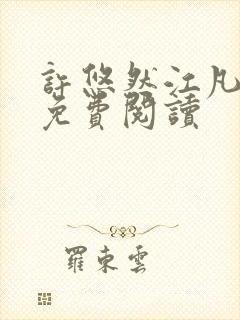 許悠然江凡
免費閱讀
羅東雲